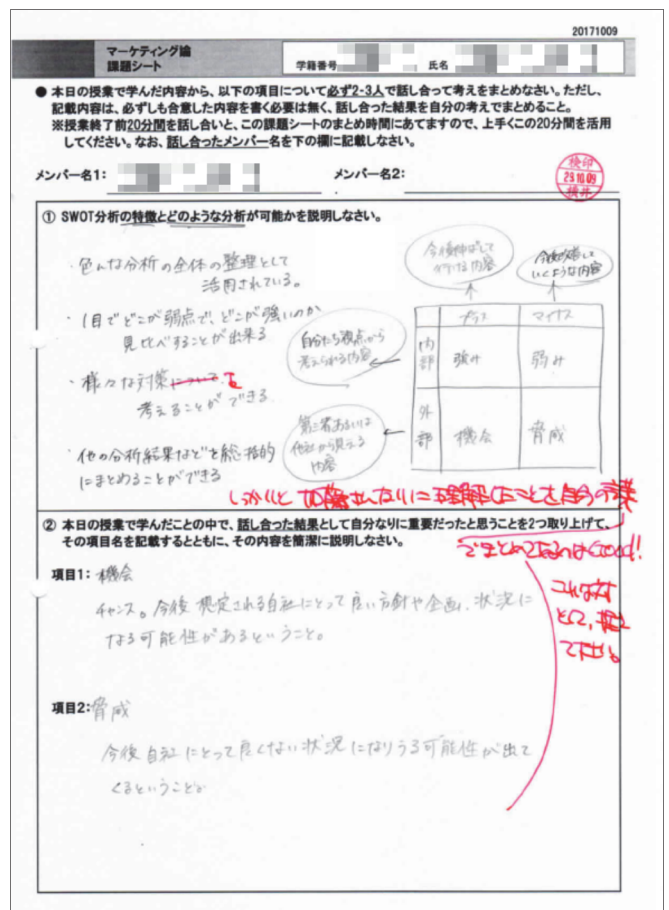 20171009
マーケティング論
課題シート
学籍番号
氏名
● 本日の授業で学んだ内容から、以下の項目について必ず2-3人で話し合って考えをまとめなさい。ただし、
記載内容は、必ずしも合意した内容を書く必要は無く、話し合った結果を自分の考えでまとめること。
※授業終了前20分間を話し合いと、この課題シートのまとめ時間にあてますので、上手くこの20分間を活用
してください。なお、話し合ったメンバー名を下の欄に記載しなさい。
メンバー名1:
メンバー名2:
検印
29.10.09
① SWOT分析の特徴とどのような分析が可能かを説明しなさい。
・色んな分析の全体の整理として
活用されている。
・1目でどこが弱点で、どこが強いのか
見比べすることが出来る
・様々な対策について を
考えることができる
・他の分析結果などを総括的
にまとめることができる
今後伸ばして
行ける内容
今後改善して
いくような内容
プラス
マイナス
自分たち視点から
考えられる内容
内部
強み
弱み
第三者あるいは
他社から見える
内容
外部
機会
脅威
しっかりと
理解したことを自分の
② 本日の授業で学んだことの中で、話し合った結果として自分なりに重要だったと思うことを2つ取り上げて、
その項目名を記載するとともに、その内容を簡潔に説明しなさい。
でまとめてあるのはGood!
項目1: 機会
チャンス。今後想定される自社にとって良い方針や企画、状況に
なる可能性があるということ。
項目2: 脅威
今後自社にとって良くない状況になりうる可能性が出て
くるということ。